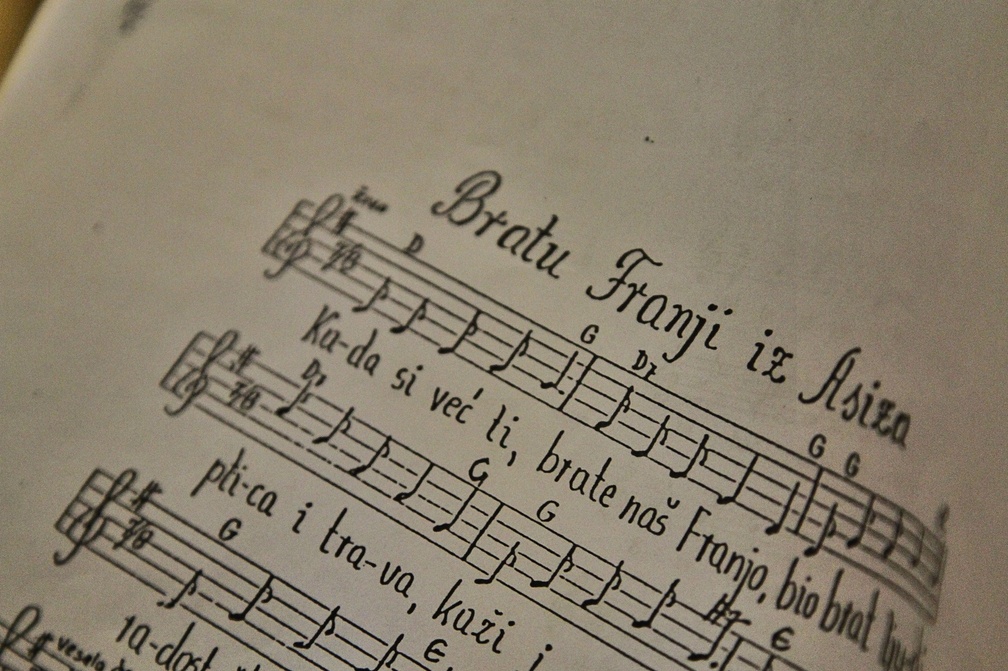 Bratu Franji iz Asiza
D G D7 G G
7/8
Ka-da si već ti, brate naš Franjo, bio brat
D7 G G
7/8
pti-ca i tra-va, kaži i
G E H7 E
7/8
ra-dost
vesela